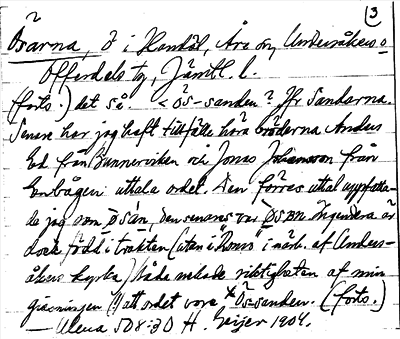 3
Ösarna, ö i Handöl, Åre sn, Undersåkers o
Offerdals tg, Jämtl. l.
(forts.) det så. < ös-sanden? Jfr Sandarna.
Senare har jag haft tillfälle höra bröderna Anders
Ed från Bunnerviken och Jonas Johansson från
Enbågen uttala ordet. Den förres uttal uppfatta-
de jag som Ösan, den senares var Ösan. Ingendera är
dock född i trakten (utan i "Romo" i närh. af Unders-
åkers kyrka) Båda nekade riktigheten af min
gissningen (!) att ordet vore *Ös-sanden. (forts.)
— Ulma 508:30 H. Geijer 1904.